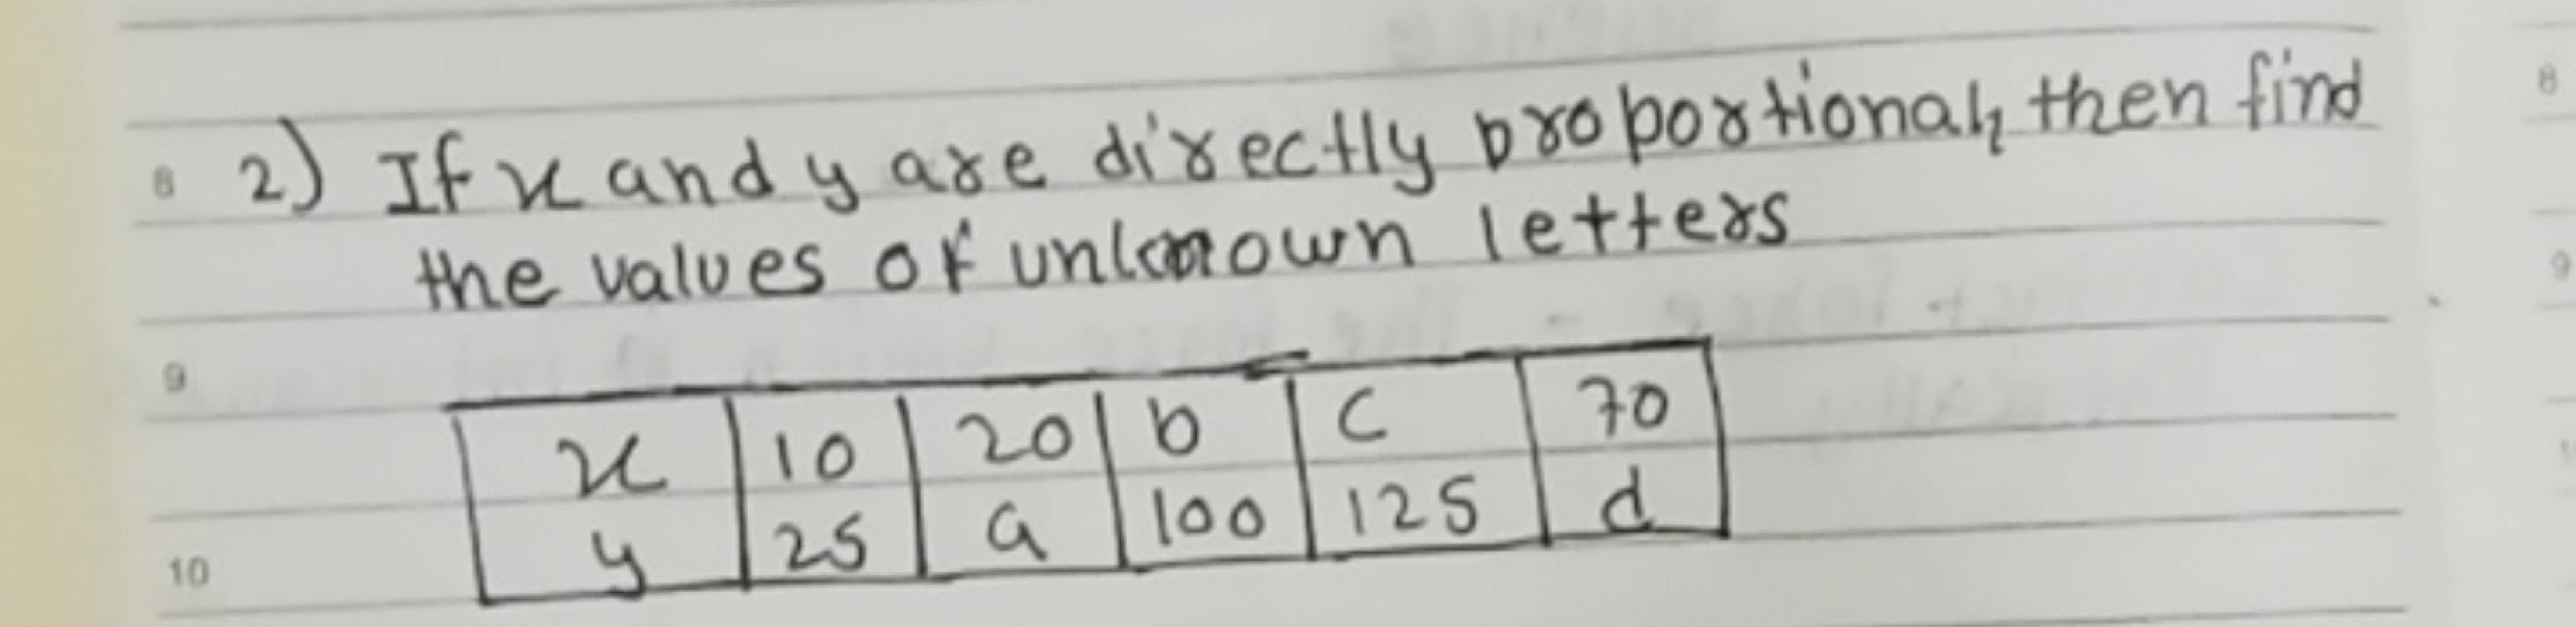 2) If x and y are directly proportional, then find
the values of unknown letters
x 10 20 b c 70
y 25 a 100 125 d
8
9
10
8
9